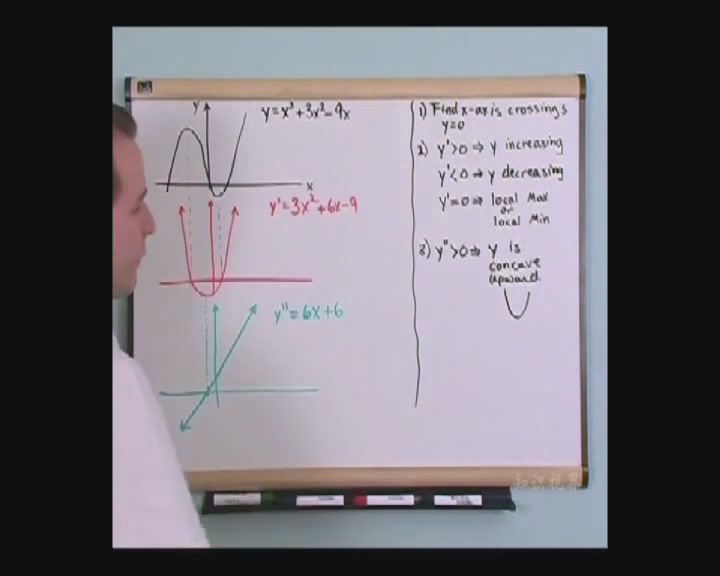 y
y=x³+3x²-9x
x
y'=3x²+6x-9
y"=6x+6
1) Find x-axis crossings
y=0
2) y'>0 ⇒ y increasing
y'<0 ⇒ y decreasing
y'=0 ⇒ local Max
or
local Min
3) y">0 ⇒ y is
concave
upward
知识视界